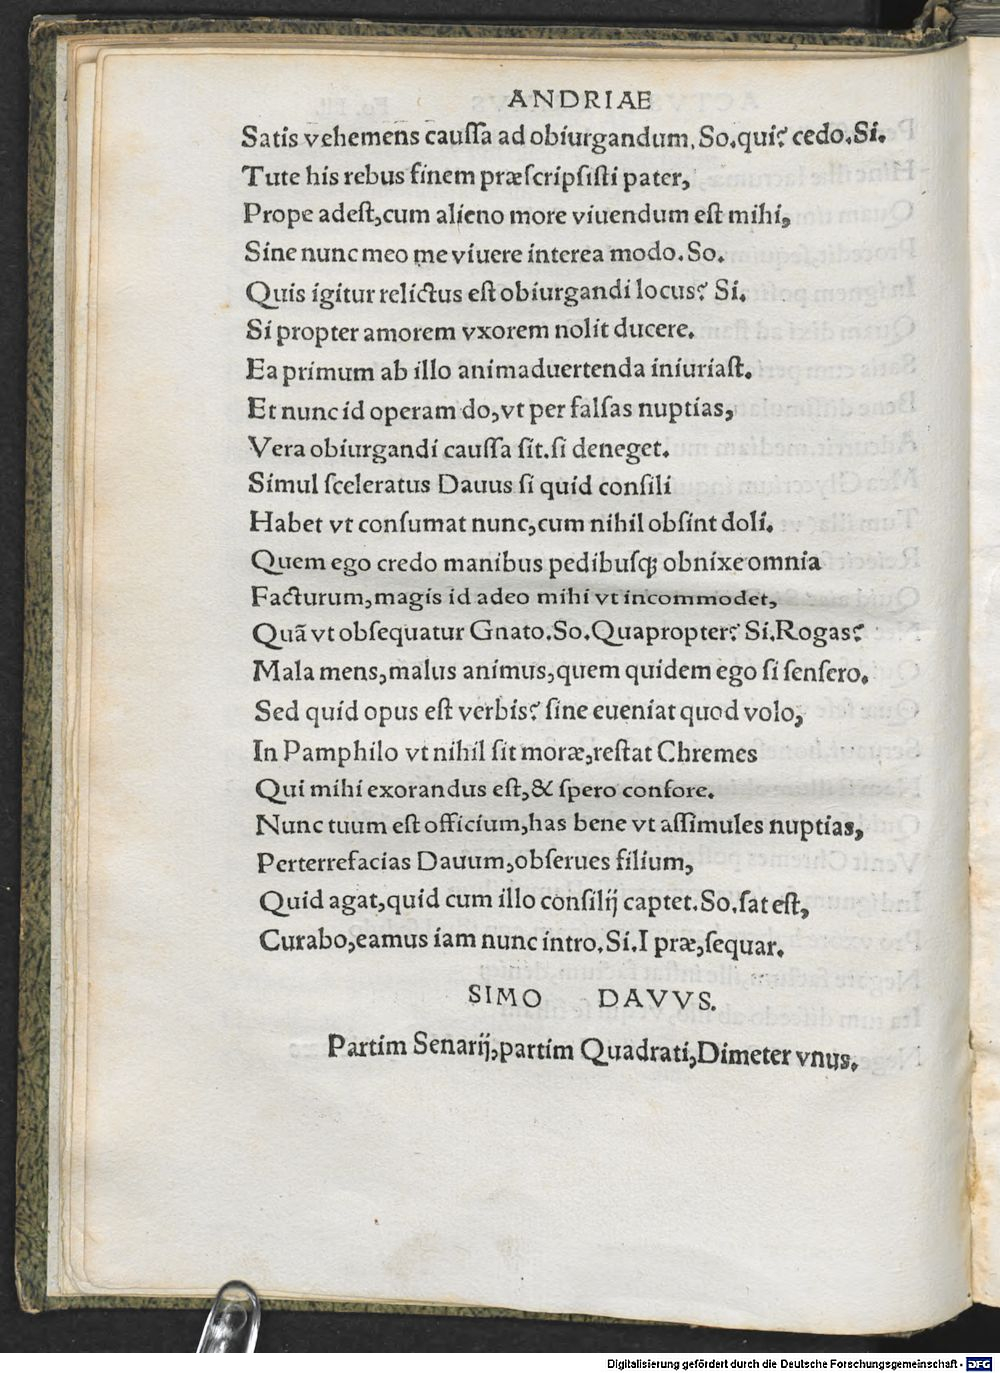 ANDRIAE
Satis vehemens cauſſa ad obiurgandum. So. qui? cedo. Si.
Tute his rebus finem præſcripſiſti pater,
Prope adeſt, cum alieno more viuendum eſt mihi,
Sine nunc meo me viuere interea modo. So.
Quis igitur relictus eſt obiurgandi locus? Si.
Si propter amorem vxorem nolit ducere.
Ea primum ab illo animaduertenda iniuriaſt.
Et nunc id operam do, vt per falſas nuptias,
Vera obiurgandi cauſſa ſit. ſi deneget.
Simul ſceleratus Dauus ſi quid conſili
Habet vt conſumat nunc, cum nihil obſint doli.
Quem ego credo manibus pedibuſq; obnixe omnia
Facturum, magis id adeo mihi vt incommodet,
Quã vt obſequatur Gnato. So. Quapropter? Si. Rogas?
Mala mens, malus animus, quem quidem ego ſi ſenſero.
Sed quid opus eſt verbis? ſine eueniat quod volo,
In Pamphilo vt nihil ſit moræ, reſtat Chremes
Qui mihi exorandus eſt, & ſpero confore.
Nunc tuum eſt officium, has bene vt aſſimules nuptias,
Perterrefacias Dauum, obſerues filium,
Quid agat, quid cum illo conſilij captet. So. ſat eſt,
Curabo, eamus iam nunc intro. Si. I præ, ſequar.
SIMO DAVVS.
Partim Senarij, partim Quadrati, Dimeter vnus.
Digitalisierung gefördert durch die Deutsche Forschungsgemeinschaft - DFG